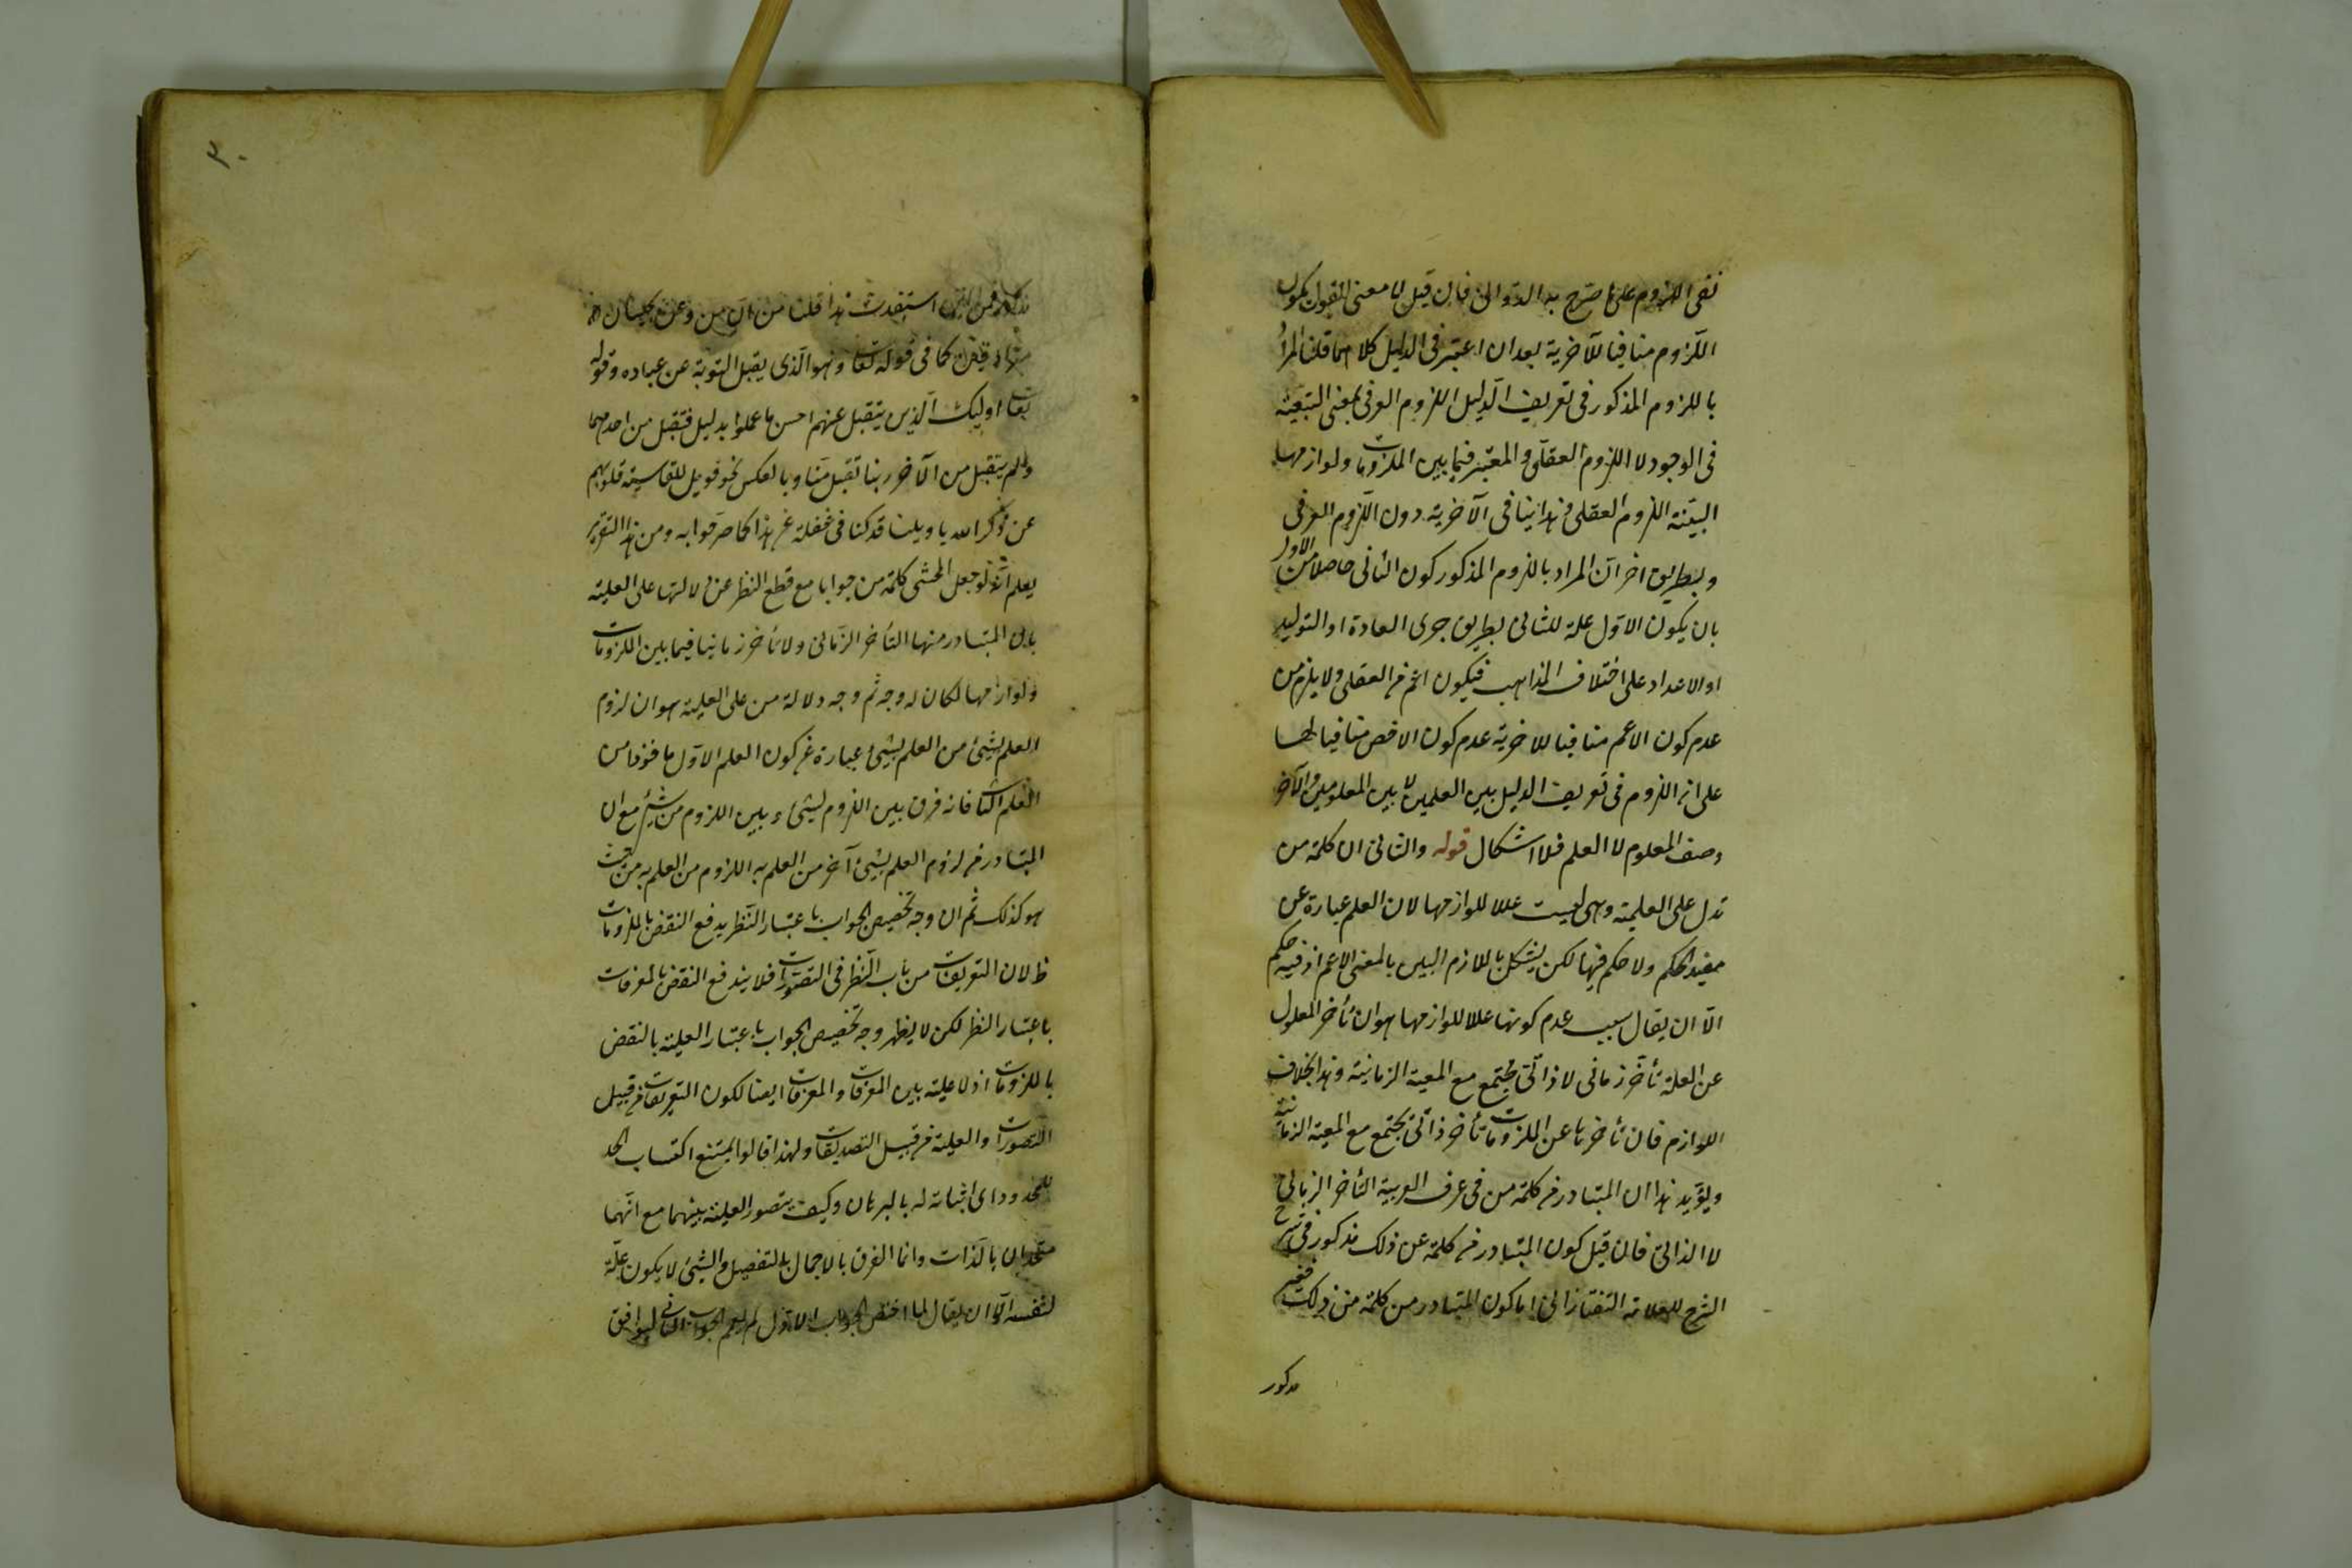 نفى اللزوم على ما صرح به الدوانى فان قيل لا معنى للقول بكون
اللزوم منافيا للآخرية بعد ان اعتبر فى الدليل كلاهما قلنا المراد
باللزوم المذكور فى تعريف الدليل اللزوم العرفى بمعنى التبعية
فى الوجود لا اللزوم العقلى والمعتبر فيما بين الملزومات ولوازمها
البينة اللزوم العقلى فهذا ينافى الآخرية دون اللزوم العرفى
وبطريق اخر ان المراد باللزوم المذكور كون الثانى حاصلا من الاول
بان يكون الاول علة للثانى بطريق جرى العادة او التوليد
او الاعداد على اختلاف المذاهب فيكون اعم من العقلى ولا يلزم من
عدم كون الاعم منافيا للاخرية عدم كون الاخص منافيا لها
على ان اللزوم فى تعريف الدليل بين العلمين لا بين المعلومين والآخر
وصف المعلوم لا العلم فلا اشكال قوله والثانى ان كلمة من
تدل على العلية وهى ليست عللا للوازمها لان العلم عبارة عن
مفيد الحكم ولا حكم فيها لكن يشكل باللازم البين بالمعنى الاعم اذ فيه حكم
الا ان يقال سبب عدم كونها عللا للوازمها هو ان تأخر المعلول
عن العلة تأخر زمانى لا ذاتى يجتمع مع المعية الزمانية وهذا بخلاف
اللوازم فان تأخرها عن الملزومات تأخر ذاتى يجتمع مع المعية الزمانية
ويؤيد هذا ان المتبادر من كلمة من فى عرف العربية التأخر الزمانى
لا الذاتى فان قيل كون المتبادر من كلمة عن ذلك مذكور فى شرح
الشرح للعلامة التفتازانى اما كون المتبادر من كلمة من ذلك فغير
مذكور
٣٠
مذكور فمن اين استفدت هذا قلنا من ان من وعن يجيئان
كما فى قوله تعا وهو الذى يقبل التوبة عن عباده وقوله
تعا اوليك الذين يتقبل عنهم احسن ما عملوا بدليل فتقبل من احدهما
ولم يتقبل من الآخر ربنا تقبل منا وبالعكس نحو فويل للقاسية قلوبهم
عن ذكر الله يا ويلنا قد كنا فى غفلة عن هذا كما صرحوا به ومن هذا التقرير
يعلم انه لو جعل المحشى كلمة من جوابا مع قطع النظر عن دلالتها على العلية
بان المتبادر منها التأخر الزمانى ولا تأخر زمانيا فيما بين الملزومات
ولوازمها لكان له وجه ثم وجه دلالة من على العلية هو ان لزوم
العلم بشيئ من العلم بشيئ عبارة عن كون العلم الاول ماخوذا من
العلم الثانى فانه فرق بين اللزوم لشيئ وبين اللزوم من شيئ مع ان
المتبادر من لزوم العلم بشيئ آخر من العلم به اللزوم من العلم به من حيث
هو كذلك ثم ان وجه تخصيص الجواب باعتبار النظر بدفع النقض بالملزومات
ظ لان التعريفات من باب النظر فى التصورات فلا يندفع النقض بالمعرفات
باعتبار النظر لكن لا يظهر وجه تخصيص الجواب باعتبار العلية بالنقض
بالملزومات اذ لا علية بين المعرفات والمعرفات ايضا لكون التعريفات من قبيل
التصورات والعلية من قبيل التصديقات ولهذا قالوا يمتنع اكتساب الحد
للمحدود اى اثباته له بالبرهان وكيف يتصور العلية بينهما مع انهما
متحدان بالذات وانما الفرق بالاجمال والتفصيل والشيئ لا يكون علة
لنفسه الا ان يقال لما اختص الجواب الاول لم يعم الجواب الثانى ليوافق